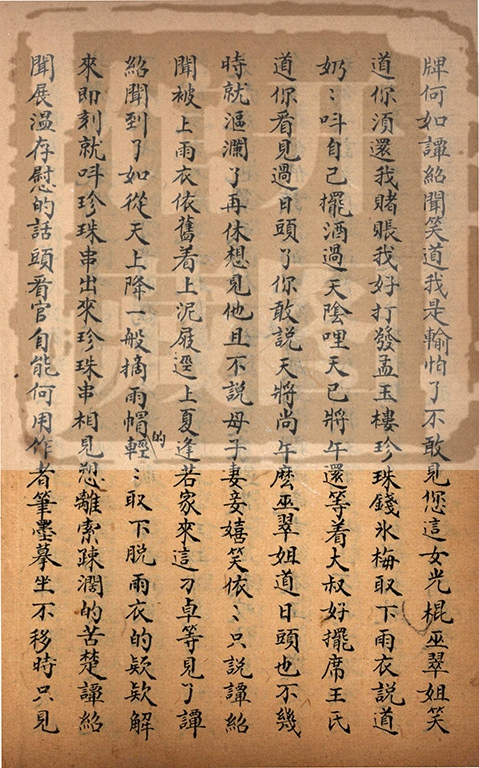 牌何如譚紹聞笑道我是輸怕了不敢見您這女光棍巫翠姐笑
道你湏還我賭賬我好打發孟玉樓珍珠錢氷梅取下雨衣說道
奶〻呌自己擺酒過天陰哩天已將午還等着大叔好擺席王氏
道你看見過日頭了你敢說天將尚午麽巫翠姐道日頭也不幾
時就漚瀾了再休想見他且不說母子妻妾嬉笑依〻只說譚紹
聞被上雨衣依舊着上泥屐逕上夏逢若家來這刁卓等見了譚
紹聞到了如從天上降一般摘雨帽輕的〻取下脱雨衣的欵欵解
來即刻就呌珍珠串出來珍珠串相見恕離索疎濶的苦楚譚紹
聞展温存慰的話頭看官自能何用作者筆墨摹坐不移時只見